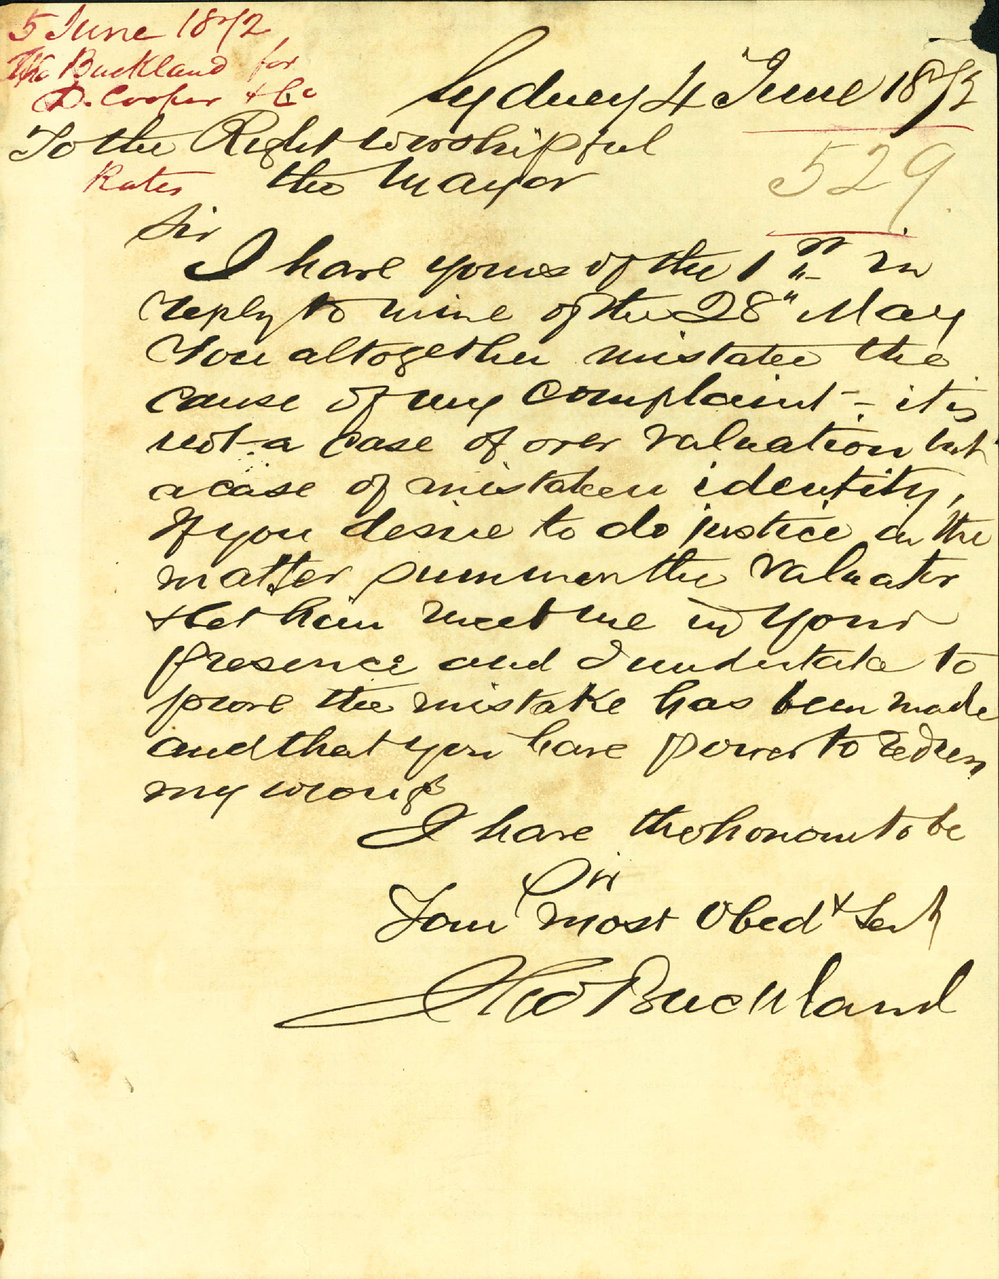 5 June 1872
Tho Buckland for
D. Cooper & Co
Sydney 4 June 1872
To the Right Worshipful
Rates the Mayor
529
Sir
I have yours of the 1st in
reply to mine of the 28" May
You altogether mistake the
cause of my complaint - it is
not a case of over valuation but
a case of mistaken identity,
If you desire to do justice in the
matter summon the Valuator
& let him meet me in your
presence and I undertake to
prove the mistake has been made
and that you have power to redress
my wrong
I have the honour to be
Sir
Your most Obedt Servt
Tho Buckland